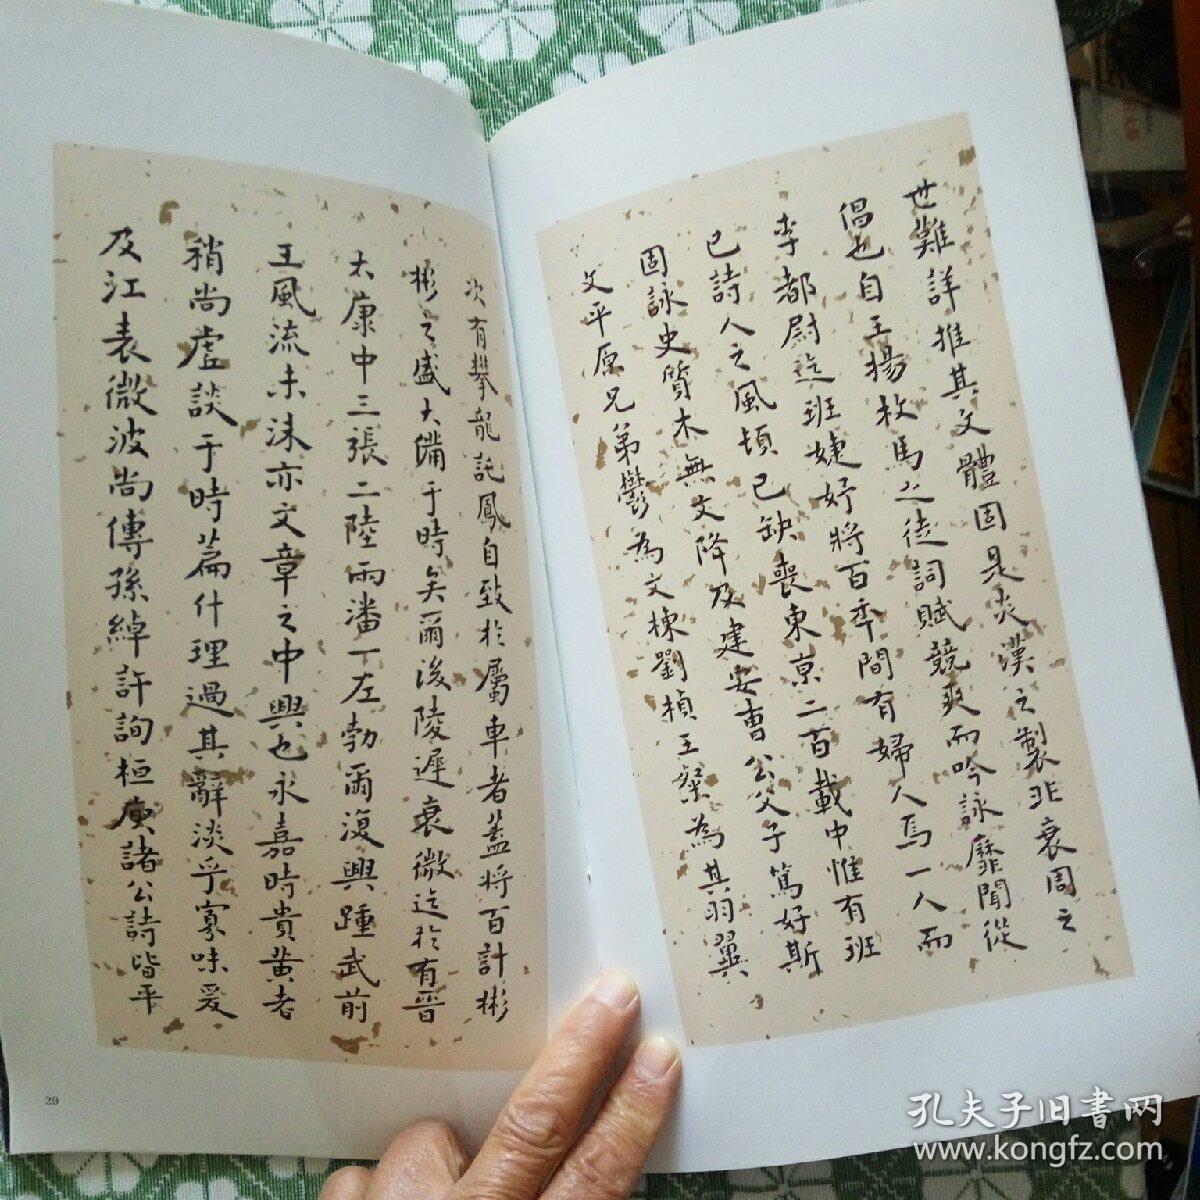 世難詳推其文體固是炎漢之製非衰周之
倡也自王揚枚馬之徒詞賦競爽而吟詠靡聞從
李都尉迄班婕妤將百年間有婦人焉一人而
已詩人之風頓已缺喪東京二百載中惟有班
固詠史質木無文降及建安曹公父子篤好斯
文平原兄弟鬱為文棟劉楨王粲為其羽翼
次有攀龍託鳳自致於屬車者蓋將百計彬
彬之盛大備于時矣爾後陵遲衰微迄於有晉
太康中三張二陸兩潘一左勃爾復興踵武前
王風流未沬亦文章之中興也永嘉時貴黃老
稍尚虛談于時篇什理過其辭淡乎寡味爰
及江表微波尚傳孫綽許詢桓庾諸公詩皆平
29
孔夫子旧书网
www.kongfz.com